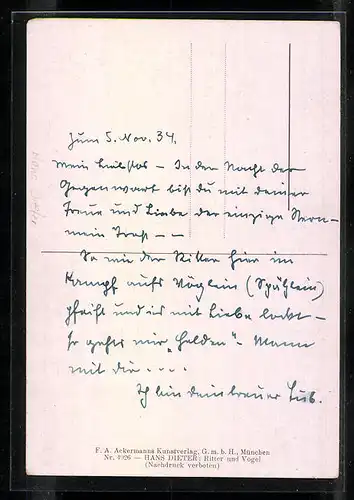 Zum 5. Nov. 34.
Mein Liebstes – In der Nacht der
Gegenwart bist du mit deiner
Treue und Liebe der einzige Stern –
mein Trost – –
So wie der Ritter hier im
Kampf aufs Vöglein (Spätzlein)
pfeift und es mit Liebe lockt –
So gehts mir "Helden" – Mann
mit dir . . . .
Ich bin dein treuer Lub.
F. A. Ackermanns Kunstverlag, G. m. b. H., München
Nr. 1926 — HANS DIETER: Ritter und Vogel
(Nachdruck verboten)